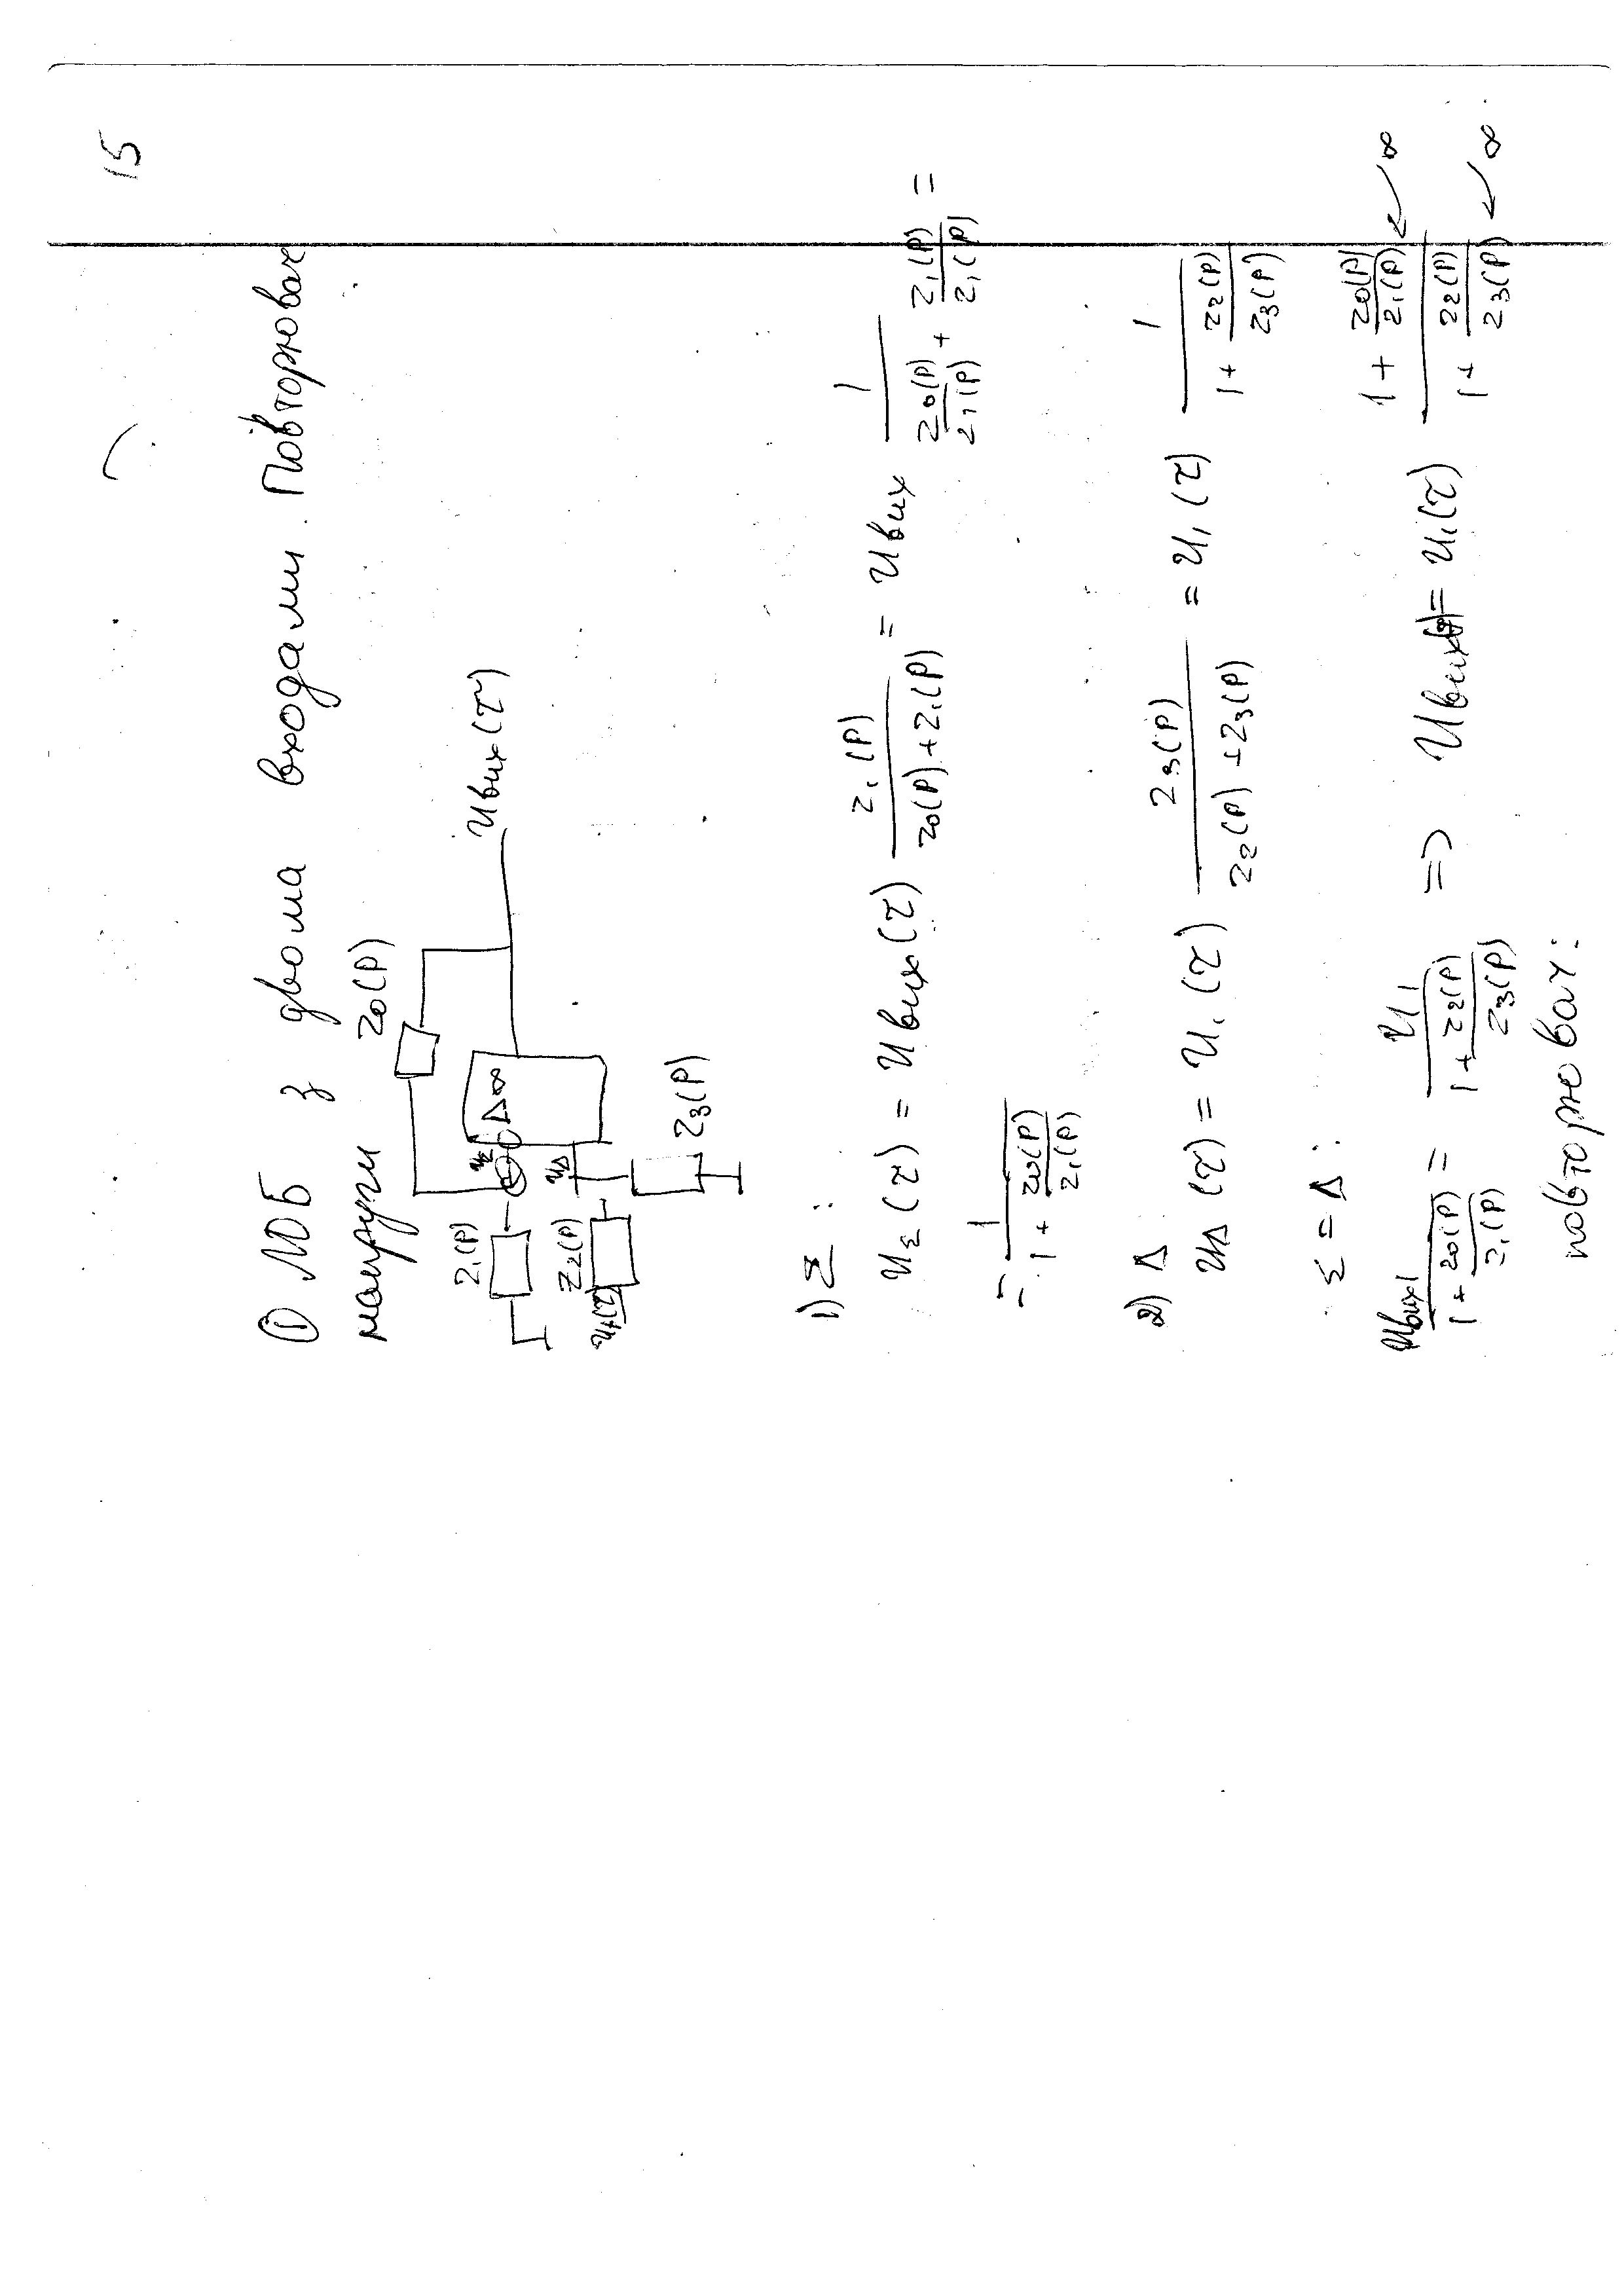 15
① ЛОБ з двома входами. Повторювач
напруги
Z₀(P)
Z₁(P)
u_Σ
Δ∞
Uвих(τ)
Z₂(P)
u_Δ
u₁(τ)
Z₃(P)
1) Σ :
u_Σ(τ) = Uвих(τ) Z₁(P) / (Z₀(P)+Z₁(P)) = Uвих 1 / (Z₀(P)/Z₁(P) + Z₁(P)/Z₁(P)) =
= 1 / (1 + Z₀(P)/Z₁(P))
2) Δ
u_Δ(τ) = U₁(τ) Z₃(P) / (Z₂(P)+Z₃(P)) = U₁(τ) 1 / (1 + Z₂(P)/Z₃(P))
Σ = Δ :
Uвих1 / (1 + Z₀(P)/Z₁(P)) = U₁ / (1 + Z₂(P)/Z₃(P)) => Uвих(τ) = U₁(τ) (1 + Z₀(P)/Z₁(P) ↙∞) / (1 + Z₂(P)/Z₃(P) ↙∞)
повторювач: